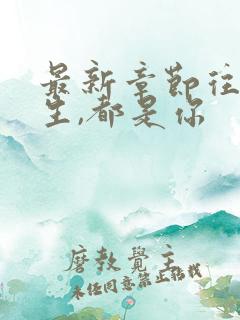 最新章节往
生,都是你
磨教覺主
未经同意禁止转载